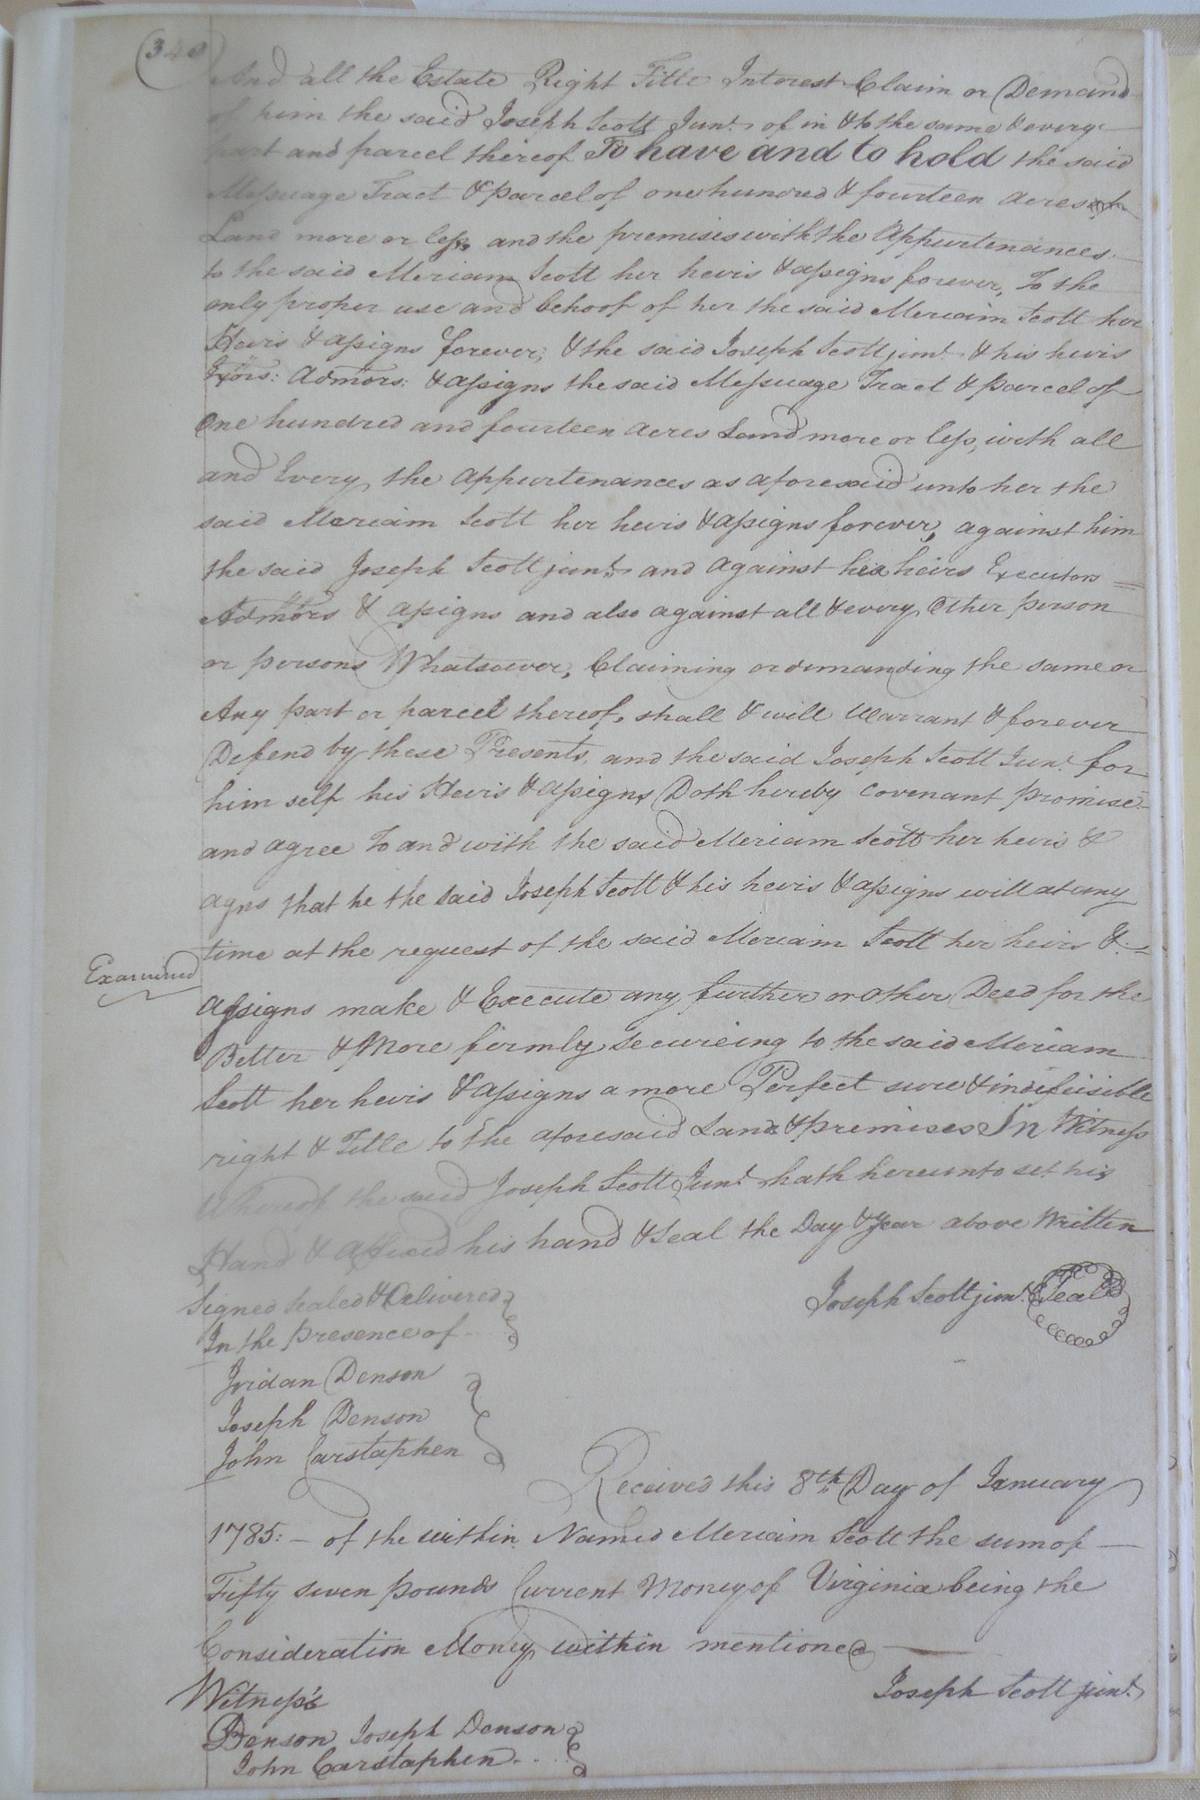 340
And all the Estate Right Title Interest Claim or Demand
of him the said Joseph Scott Junr. of in & to the same & every
part and parcel thereof To have and to hold the said
Messuage Tract & parcel of one hundred & fourteen acres of
Land more or less, and the premises with the Appurtenances
to the said Meriam Scott her heirs & assigns forever, To the
only proper use and behoof of her the said Meriam Scott her
Heirs & assigns forever; & the said Joseph Scott junr. & his heirs
Exors: Admors: & assigns the said Messuage Tract & parcel of
One hundred and fourteen acres Land more or less, with all
and Every, the Appurtenances as aforesaid unto her the
said Meriam Scott her heirs & assigns forever, against him
the said Joseph Scott junr. and against his heirs Executors
Admors & assigns and also against all & every, Other person
or persons Whatsoever, Claiming or demanding the same or
Any part or parcel thereof, shall & will Warrant & forever
Defend by these Presents, and the said Joseph Scott Junr. for
him self his Heirs & assigns Doth hereby covenant promise
and agree To and with the said Meriam Scott her heirs &
agns that he the said Joseph Scott & his heirs & assigns will at any
time at the request of the said Meriam Scott her heirs &
Examined
Assigns make & Execute any further or other Deed for the
Better & More firmly secureing to the said Meriam
Scott her heirs & assigns a more Perfect sure & indefeisible
right & Title to the aforesaid Land & premises In Witness
Whereof the said Joseph Scott Junr. hath hereunto set his
Hand & affixed his hand & seal the Day & Year above Written
Signed sealed & Delivered
Joseph Scott junr. Seal
In the presence of
Jridan Denson
Joseph Denson
John Carstaphen
Received this 8th Day of January
1785: - of the within Named Meriam Scott the sum of
Fifty seven pounds Current Money of Virginia being the
Consideration Money within mentioned
Witness's
Joseph Scott junr.
Denson Joseph Denson
John Carstaphen